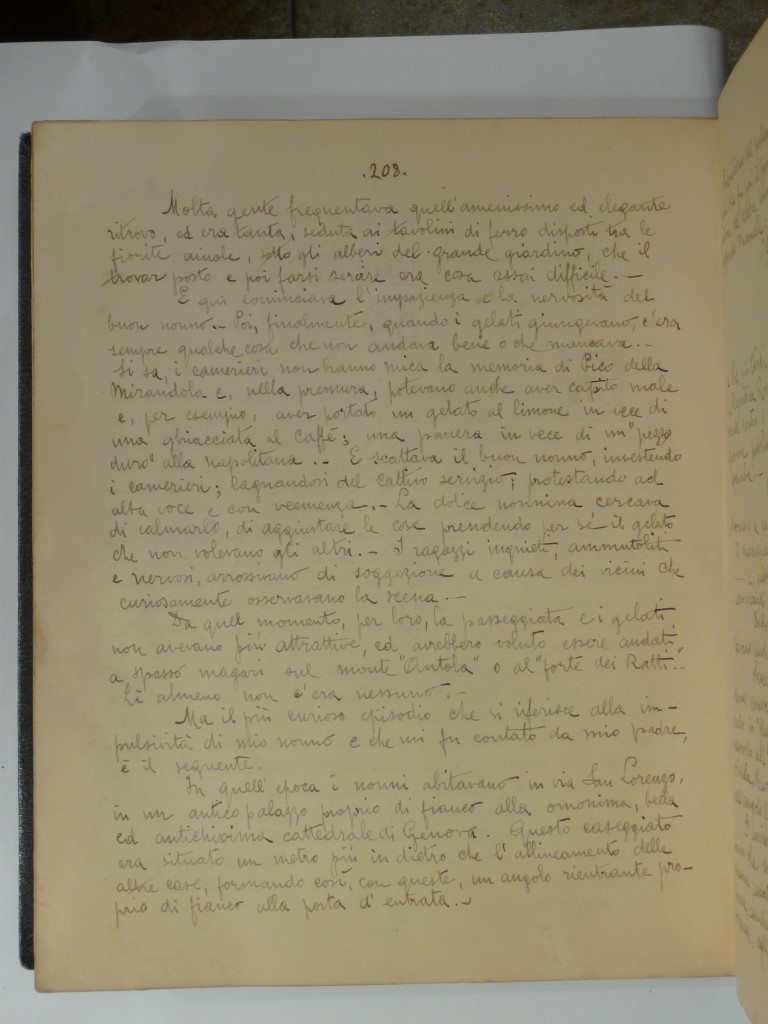 .208.
Molta gente frequentava quell'amenissimo ed elegante
ritrovo, ed era tanta, seduta ai tavolini di ferro disposti tra le
fiorite aiuole, sotto gli alberi del grande giardino, che il
trovar posto e poi farsi servire era cosa assai difficile.-
E qui cominciava l'impazienza e la nervosità del
buon nonno.. Poi, finalmente, quando i gelati giungevano, c'era
sempre qualche cosa che non andava bene o che mancava.-
Si sa, i camerieri non hanno mica la memoria di Pico della
Mirandola e, nella premura, potevano anche aver capito male
e, per esempio, aver portato un gelato al limone in vece di
una ghiacciata al caffè; una panera in vece di un "pezzo
duro" alla napolitana.- E scattava il buon nonno, investendo
i camerieri; lagnandosi del cattivo servizio; protestando ad
alta voce e con veemenza.- La dolce nonnina cercava
di calmarlo, di aggiustare le cose prendendo per sé il gelato
che non volevano gli altri.- I ragazzi inquieti, ammutoliti
e nervosi, arrossivano di soggezione a causa dei vicini che
curiosamente osservavano la scena.-
Da quel momento, per loro, la passeggiata e i gelati
non avevano più attrattive, ed avrebbero voluto essere andati
a spasso magari sul monte "Antola" o al "forte dei Ratti".-
Lì almeno non c'era nessuno!-
Ma il più curioso episodio che si riferisce alla im-
pulsività di mio nonno e che mi fu contato da mio padre,
è il seguente.
In quell'epoca i nonni abitavano in via San Lorenzo,
in un antico palazzo proprio di fianco alla omonima, bella
ed antichissima cattedrale di Genova. Questo caseggiato
era situato un metro più in dietro che l'allineamento delle
altre case, formando così, con queste, un angolo rientrante pro-
prio di fianco alla porta d'entrata.-